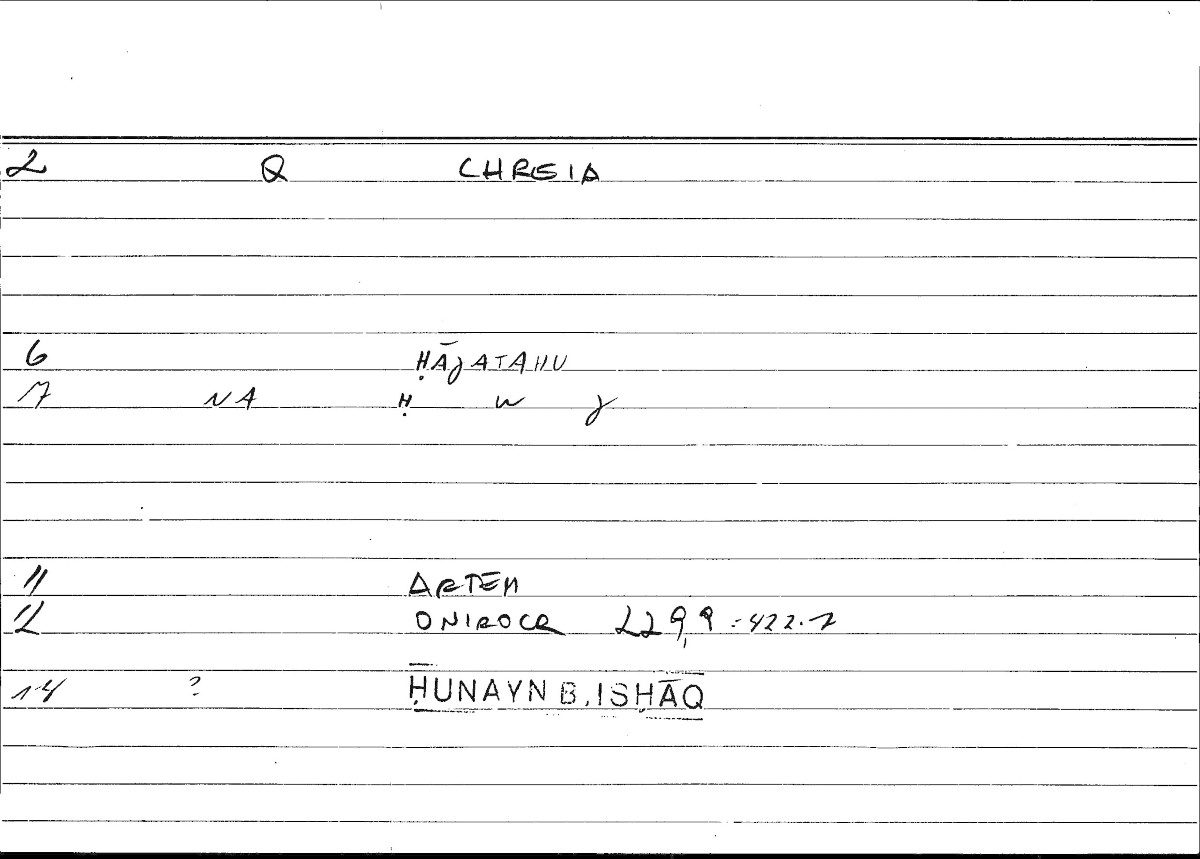 2 Q CHREIA
6 ḤĀJATAHU
7 NA Ḥ W J
11 ARTEM
12 ONIROCR 229,9 = 422.7
14 ? ḤUNAYN B. ISḤĀQ